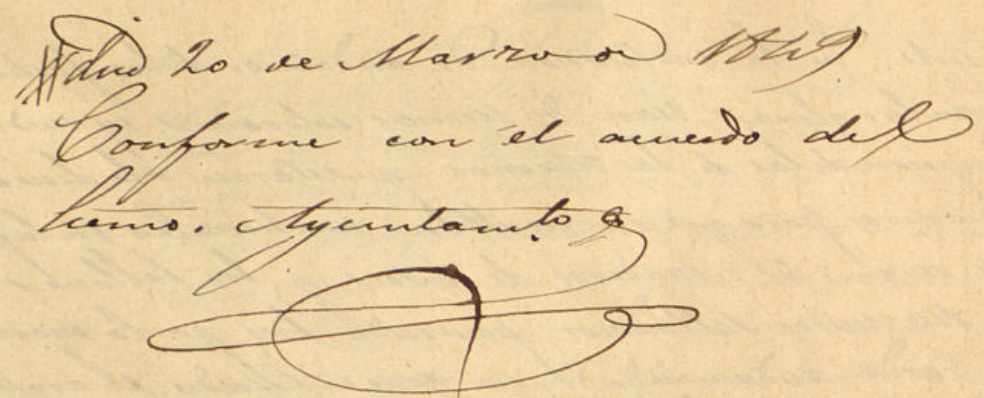 Madrid 20 de Marzo de 1849
Conforme con el acuerdo del
Excmo. Ayuntamto